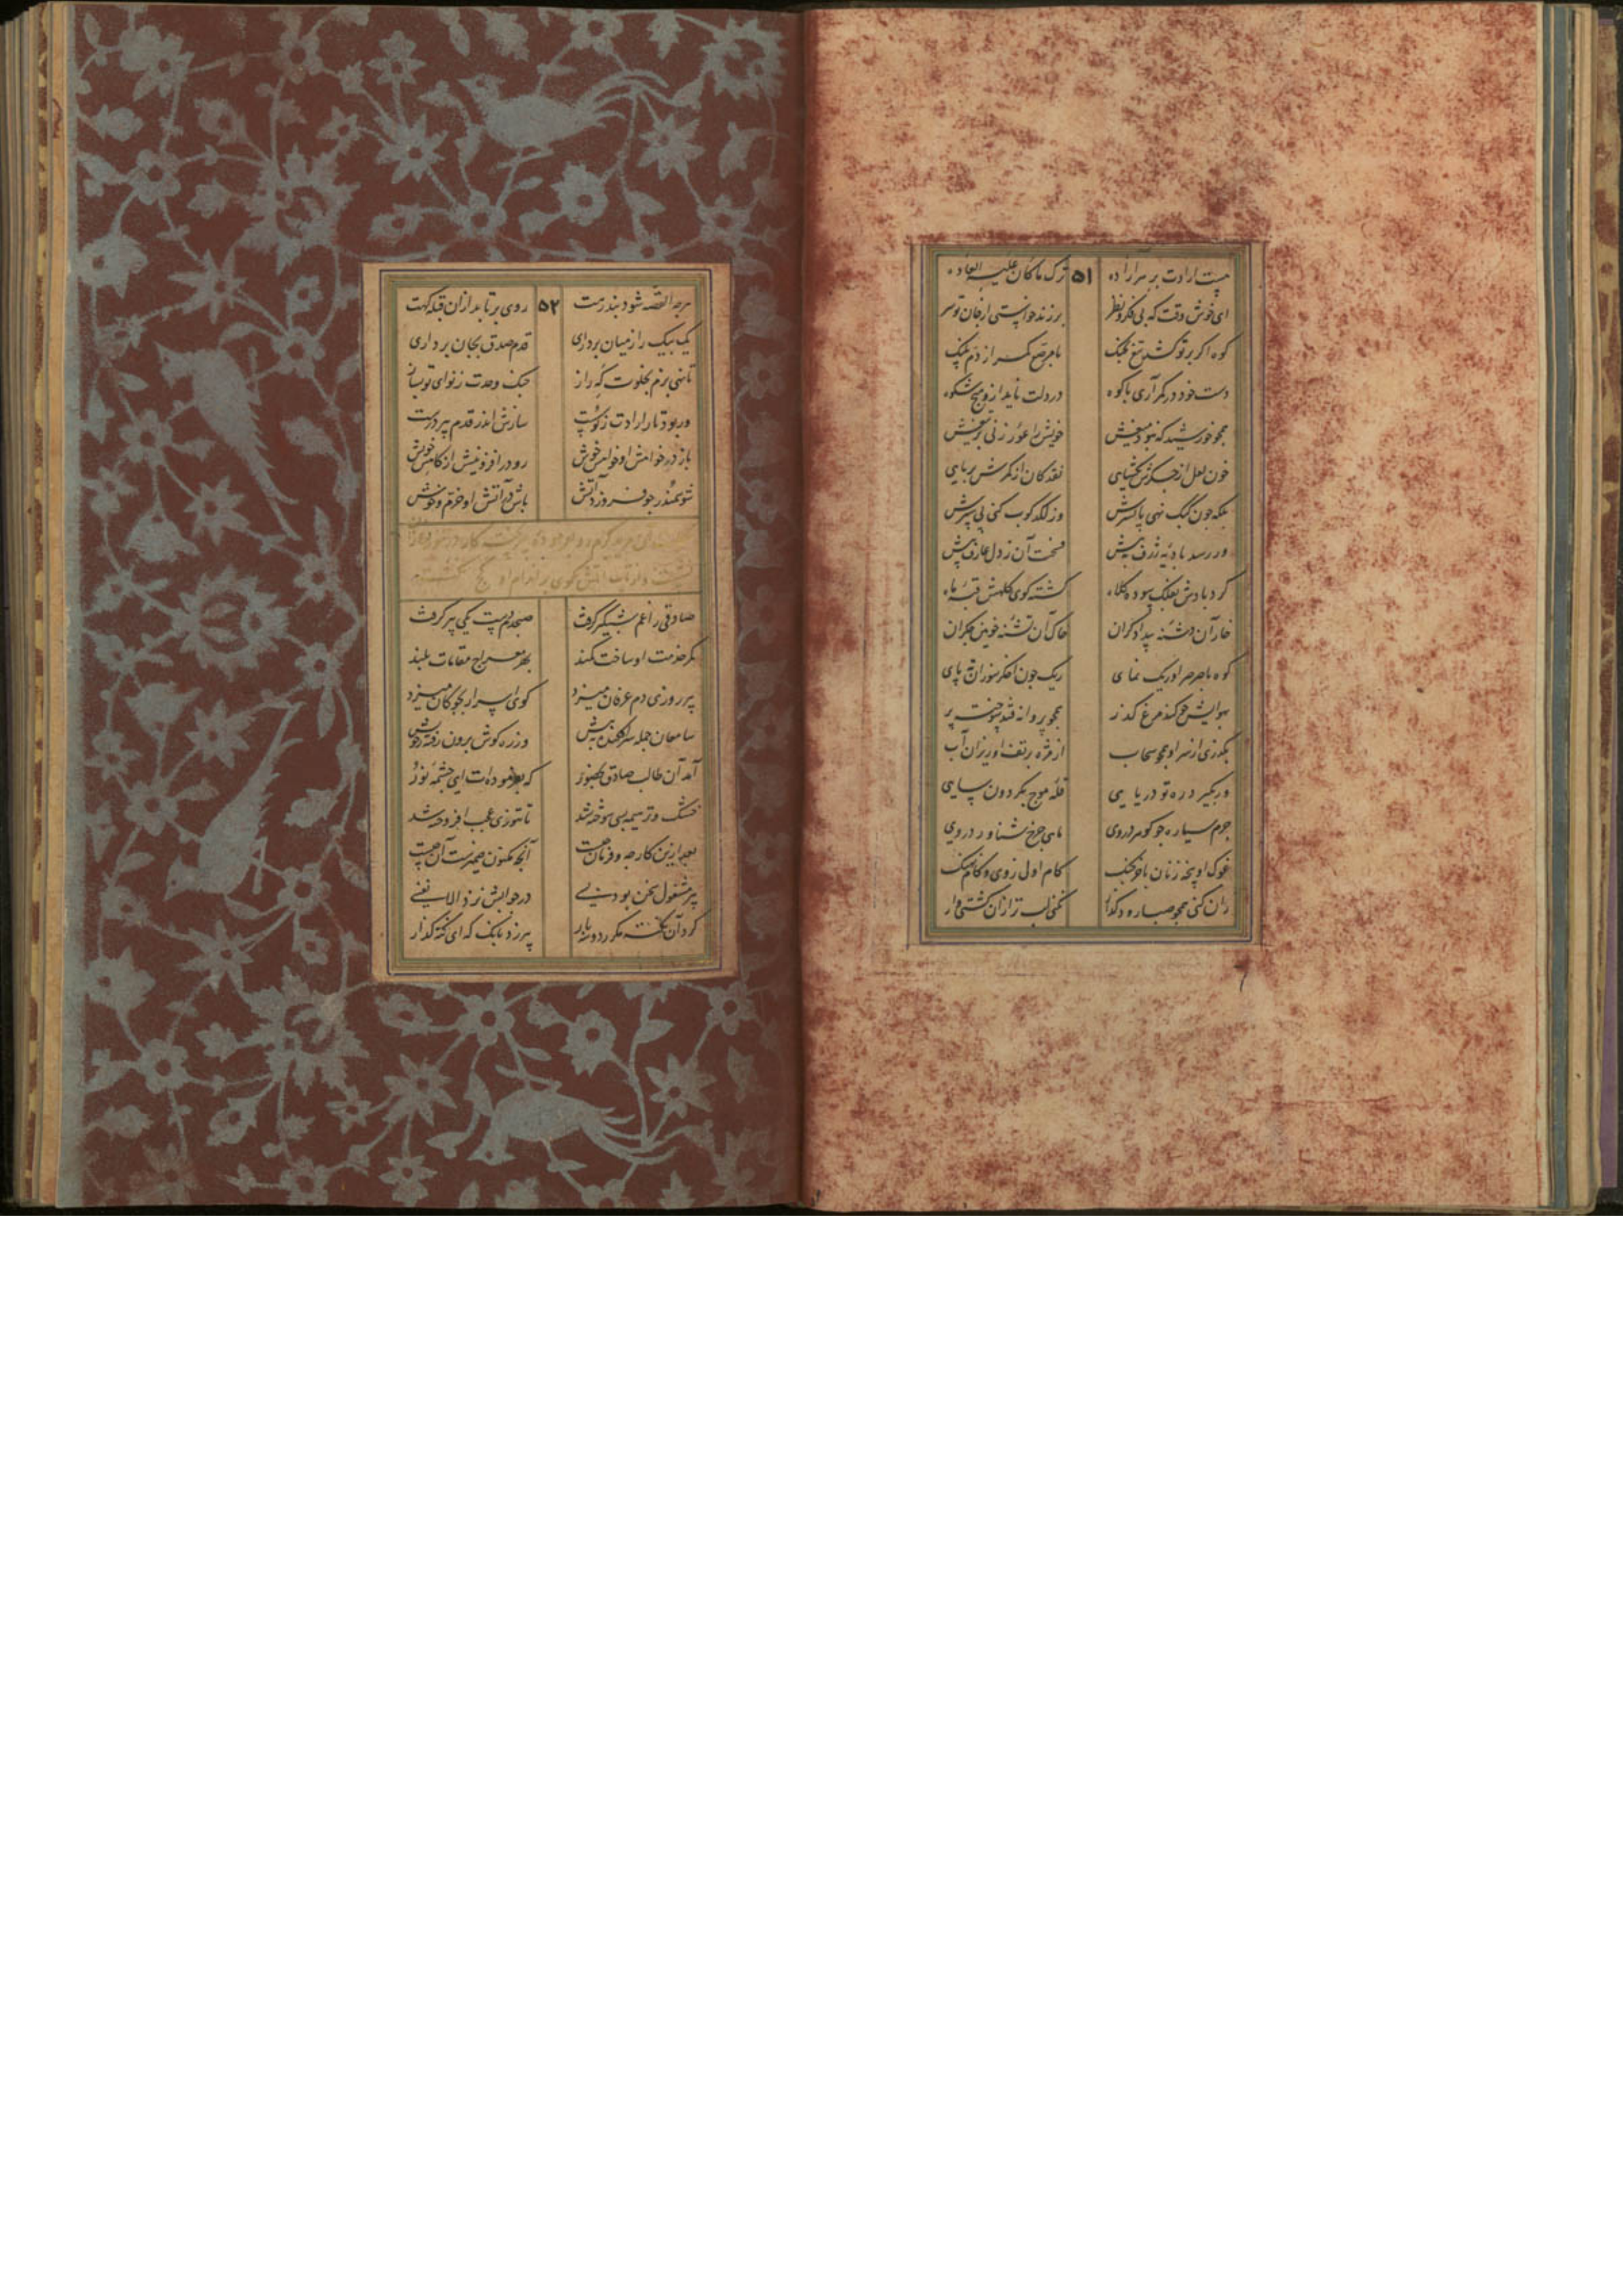 چیست ارادت بر مرد آزاده ۵۱ ترک ما کان علیه العاده
ای خوش وقت که بی فکر و نظر برزند خواستی از جان تو سر
کوه اگر بر تو کشد تیغ پلنگ با مرصع کمر از دم پلنگ
دست خود در کمر آری با کوه در دلت ناید ازو هیچ شکوه
همچو خورشید که نبود میغش خویش را عور زنی بر تیغش
خون لعل از جگرش بگشایی نقد کان از کمرش بربایی
بلکه چون کبک نهی پا بسرش وز لگدکوب کنی پی سپرش
ور رسد بادیه ژرف به پیش فسحت آن ز دل عارف بیش
گردبادش بفلک سوده کلاه گشته گوی کلهش قبه ماه
خار آن دشنه بیدادگران خاک آن تشنه خونین جگران
کوه با صرصر او ریگ نمای ریگ چون اخگر سوزان ته پای
بهوایش چو کند مرغ گذر همچو پروانه فتد سوخته پر
بگذری از سر او همچو سحاب از مژه بر تف او ریزان آب
ور بگیرد ره تو دریایی قله موج بگردون سایی
جرم سیاره چو گوهر در وی ماهی چرخ شناور در وی
غوک او پنجه زنان با خرچنگ کام اولی ز وی و کام نهنگ
ران کنی همچو صبا ره دگذار نکنی لب تر ازان کشتی وار
هرچه القصه شود بند رهت ۵۲ روی برتابد ازان قبله گهت
یک بیک را ز میان برداری قدم صدق بجان برداری
تا نهی بزم بخلوت گه راز چنگ وحدت ز نوای تو بساز
ور بود تار ارادت ز تو سست سازش اندر قدم پیر درست
باز در خواهش او خواهش خویش رو در افزونیش از کاهش خویش
شو سمندر چو فروزد آتش باش در آتش او خرم و خوش
صادقی را غم شبگیر گرفت صبحدم دست یکی پیر گرفت
کمر خدمت او ساخت کمند بهر معراج مقامات بلند
پیر روزی دم عرفان میزد گوی اسرار بچوگان میزد
سامعان جمله سرافکنده به پیش وز ره گوش برون رفته ز خویش
آمد آن طالب صادق بحضور که بفرموده ات ای چشمه نور
خشک و تر هیمه بسی سوخته شد تا تنوری عجب افروخته شد
بعد ازین کار چه و فرمان چیست آنچه مکنون ضمیرست آن چیست
پیر مشغول سخن بود بسی در جوابش نزد الا نفسی
کرد آن نکته مکرر دو سه بار پیر زد بانگ که ای نکته گذار